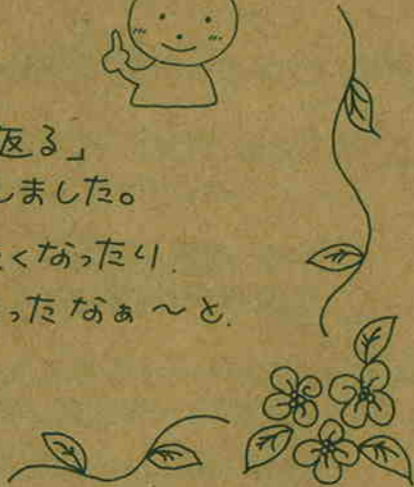 返る」
しました。
くなったり、
ったなぁ〜と、